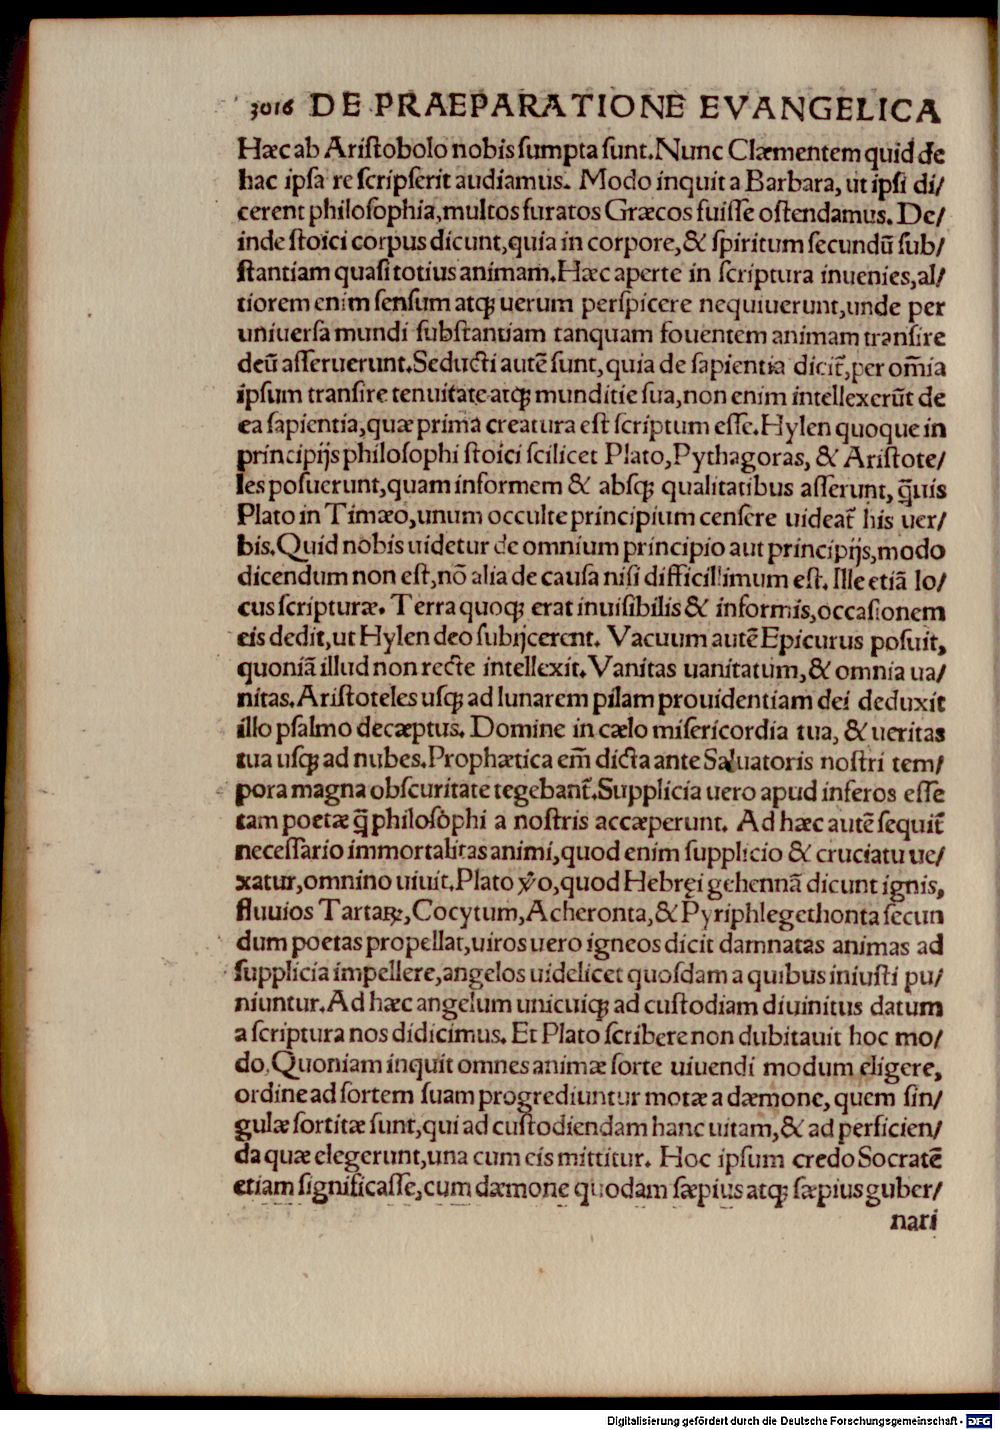 3016 DE PRAEPARATIONE EVANGELICA
Hæc ab Ariſtobolo nobis ſumpta ſunt. Nunc Clæmentem quid de
hac ipſa re ſcripſerit audiamus. Modo inquit a Barbara, ut ipſi di/
cerent philoſophia, multos furatos Græcos fuiſſe oſtendamus. De/
inde ſtoici corpus dicunt, quia in corpore, & ſpiritum ſecundũ ſub/
ſtantiam quaſi totius animam. Hæc aperte in ſcriptura inuenies, al/
tiorem enim ſenſum atqꝫ uerum perſpicere nequiuerunt, unde per
uniuerſa mundi ſubſtantiam tanquam fouentem animam tranſire
deũ aſſeruerunt. Seducti autẽ ſunt, quia de ſapientia dicit̃, per om̃ia
ipſum tranſire tenuitate atqꝫ munditie ſua, non enim intellexerũt de
ea ſapientia, quæ prima creatura eſt ſcriptum eſſe. Hylen quoque in
principijs philoſophi ſtoici ſcilicet Plato, Pythagoras, & Ariſtote/
les poſuerunt, quam informem & abſqꝫ qualitatibus aſſerunt, q̃uis
Plato in Timæo, unum occulte principium cenſere uideat̃ his uer/
bis. Quid nobis uidetur de omnium principio aut principijs, modo
dicendum non eſt, nõ alia de cauſa niſi difficillimum eſt. Ille etiã lo/
cus ſcripturæ. Terra quoqꝫ erat inuiſibilis & informis, occaſionem
eis dedit, ut Hylen deo ſubijcerent. Vacuum autẽ Epicurus poſuit,
quoniã illud non recte intellexit. Vanitas uanitatum, & omnia ua/
nitas. Ariſtoteles uſqꝫ ad lunarem pilam prouidentiam dei deduxit
illo pſalmo decæptus. Domine in cælo miſericordia tua, & ueritas
tua uſqꝫ ad nubes. Prophætica em̃ dicta ante Saluatoris noſtri tem/
pora magna obſcuritate tegebant̃. Supplicia uero apud inferos eſſe
tam poetæ q̃ philoſophi a noſtris accæperunt. Ad hæc autẽ ſequit̃
neceſſario immortalitas animi, quod enim ſupplicio & cruciatu ue/
xatur, omnino uiuit. Plato ṽo, quod Hebręi gehennã dicunt ignis,
fluuios Tartaꝝ, Cocytum, Acheronta, & Pyriphlegethonta ſecun
dum poetas propellat, uiros uero igneos dicit damnatas animas ad
ſupplicia impellere, angelos uidelicet quoſdam a quibus iniuſti pu/
niuntur. Ad hæc angelum unicuiqꝫ ad cuſtodiam diuinitus datum
a ſcriptura nos didicimus. Et Plato ſcribere non dubitauit hoc mo/
do. Quoniam inquit omnes animæ ſorte uiuendi modum eligere,
ordine ad ſortem ſuam progrediuntur motæ a dæmone, quem ſin/
gulæ ſortitæ ſunt, qui ad cuſtodiendam hanc uitam, & ad perficien/
da quæ elegerunt, una cum eis mittitur. Hoc ipſum credo Socratẽ
etiam ſignificaſſe, cum dæmone quodam ſæpius atqꝫ ſæpius guber/
nari
Digitalisierung gefördert durch die Deutsche Forschungsgemeinschaft - DFG